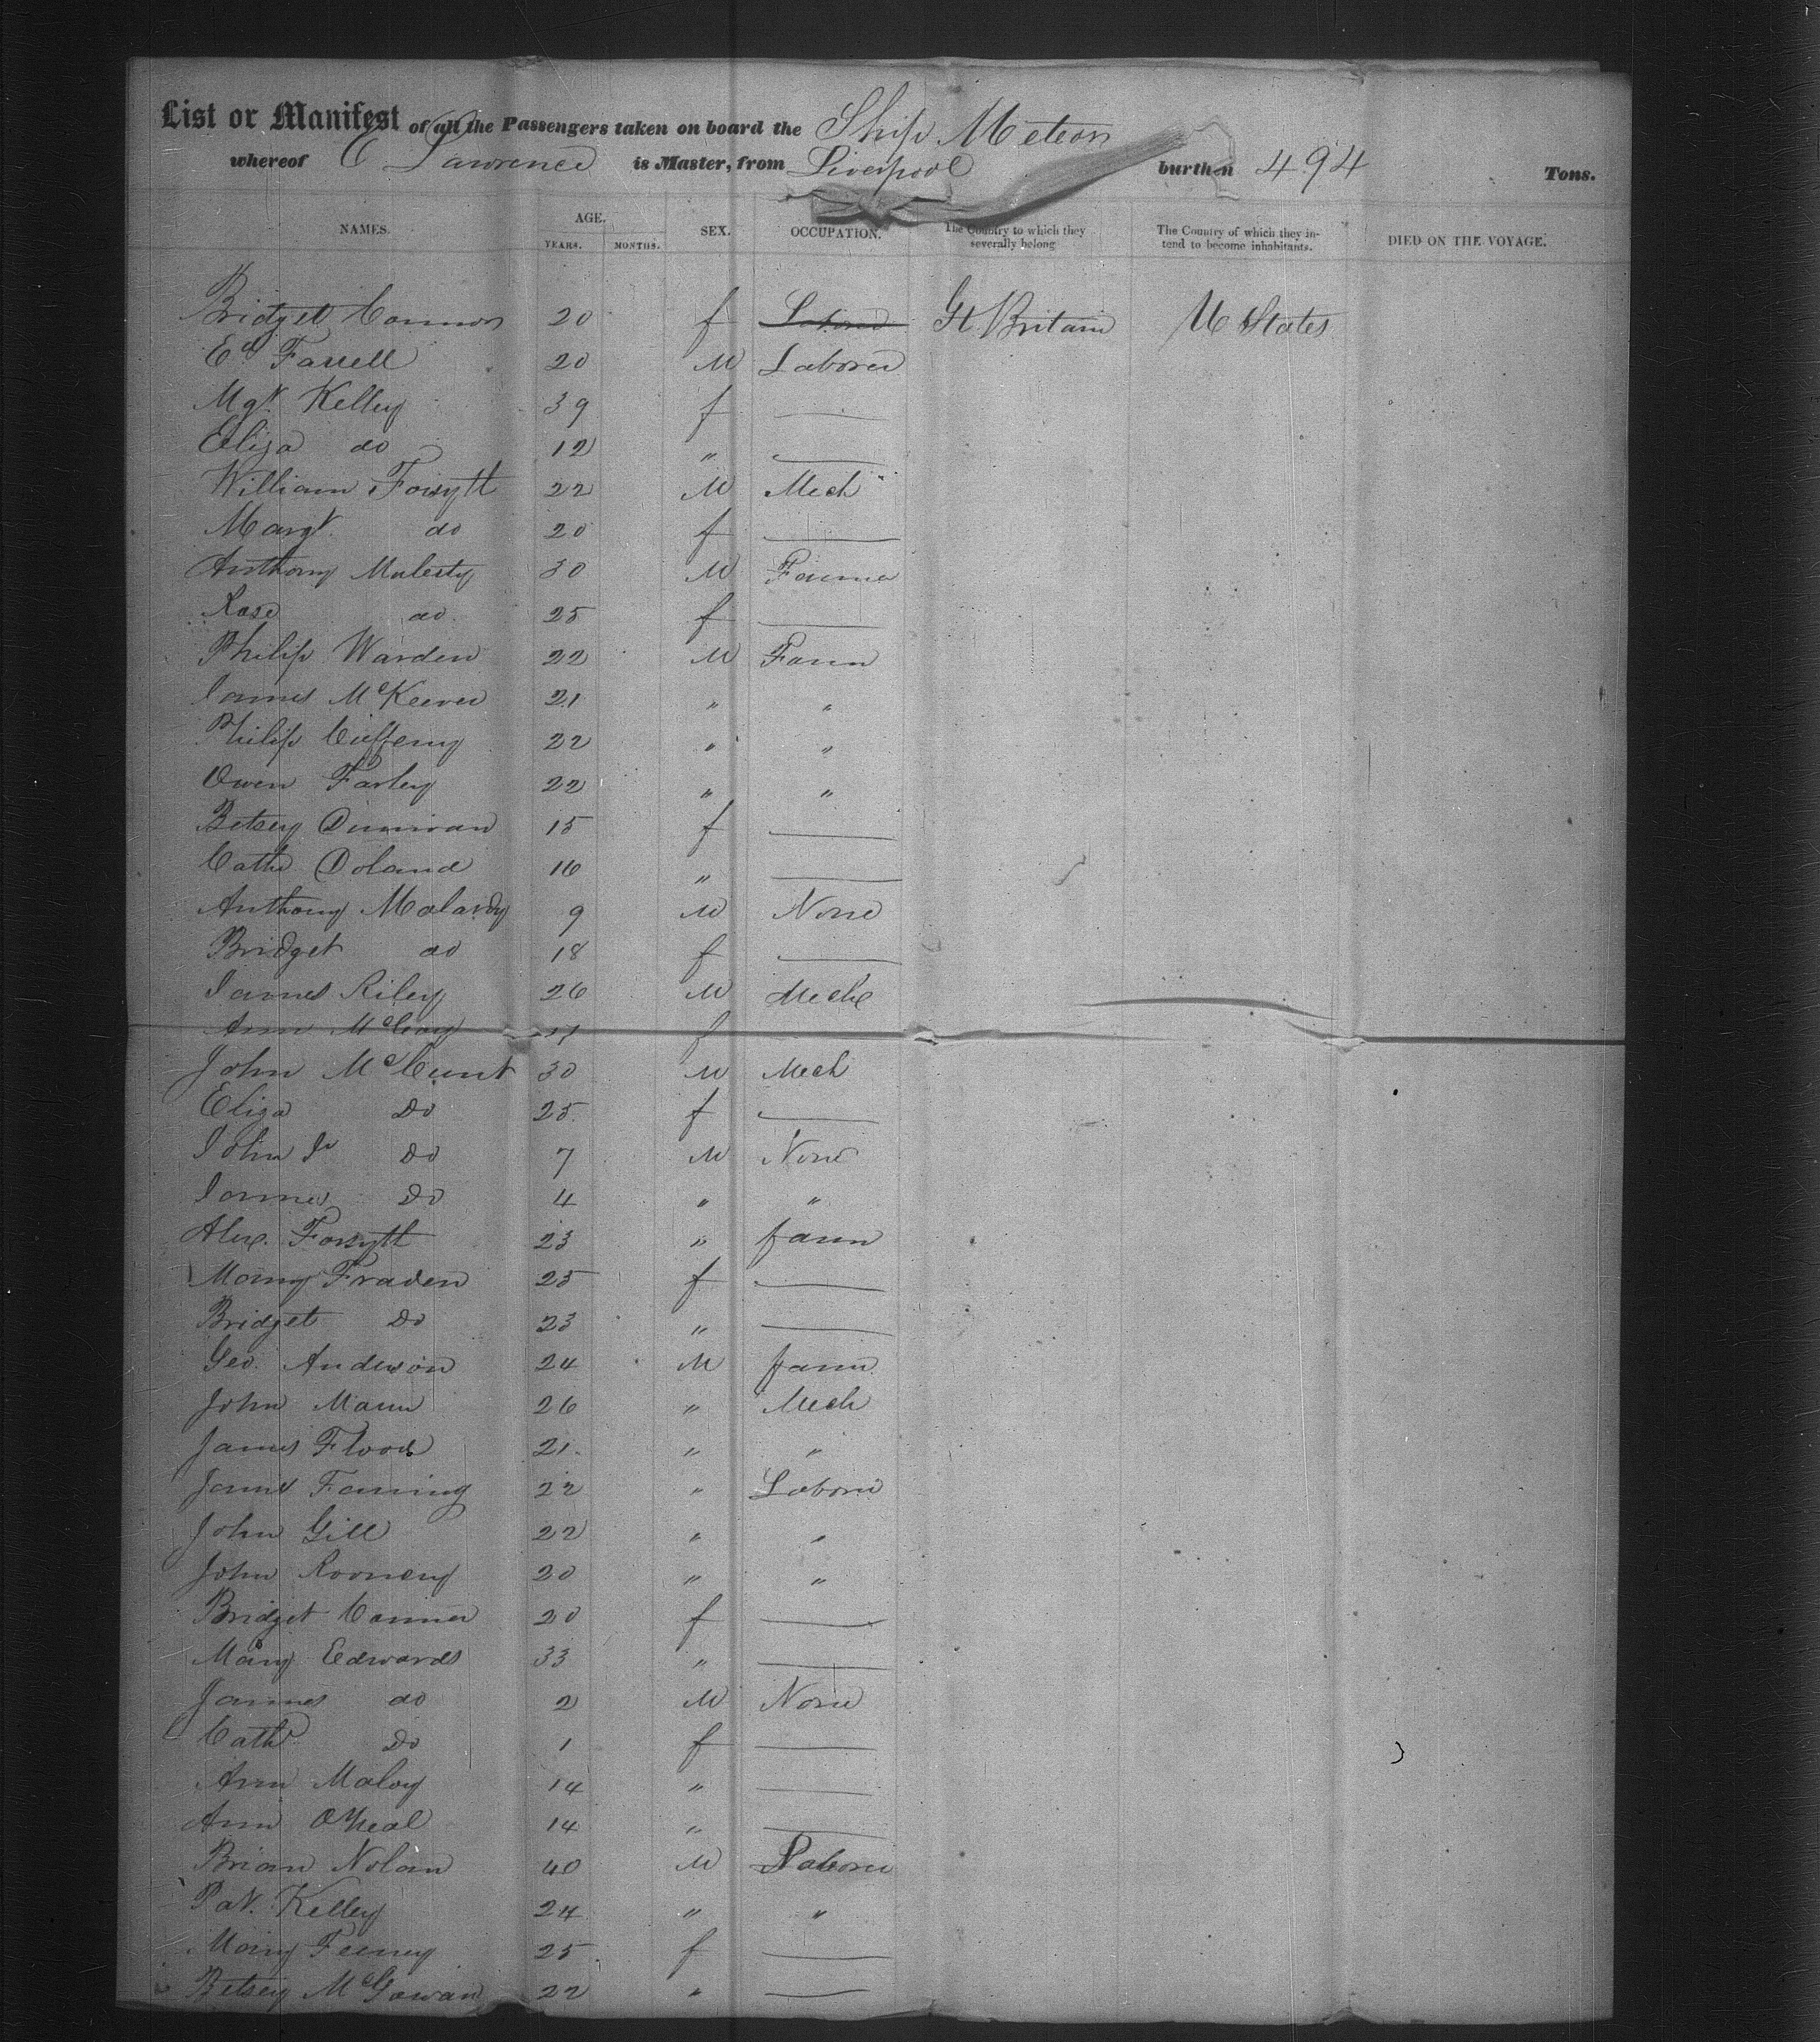 List or Manifest of all the Passengers taken on board the Ship Meteor
whereof E Lawrence is Master, from Liverpool burthen 494 Tons.
NAMES. AGE. YEARS. MONTHS. SEX. OCCUPATION. The Country to which they severally belong The Country of which they intend to become inhabitants. DIED ON THE VOYAGE.
Bridget Connor 20 f Laborer Gt Britain U States
Ed Farrell 20 M Laborer
Mgt Kelley 39 f —
Eliza do 12 " —
William Forsyth 22 M Mech
Margt do 20 f —
Anthony Mulesty 30 M Farmer
Rose do 25 f —
Philip Warden 22 M Farm
James McKeever 21 " "
Philip 22 " "
Owen Farley 22 " "
Betsey 15 f —
Cathe Doland 16 " —
Anthony Malardy 9 M None
Bridget do 18 f —
James Riley 26 M Mech
Ann f
John McCunt 30 M Mech
Eliza Do 25 f —
John Jr Do 7 M None
James Do 4 " "
Alex. Forsyth 23 " farm
Mary Fraden 25 f —
Bridget Do 23 " —
Geo. Anderson 24 M farm
John Mann 26 " Mech
James Flood 21 " "
James Fanning 22 " Laborer
John Gill 22 " "
John Rooney 20 " "
Bridget Conner 20 f —
Mary Edwards 33 " —
James do 2 M None
Cathe Do 1 f —
Ann Maloy 14 " —
Ann ONeal 14 " —
Brian Nolan 40 M Laborer
Pat. Kelley 24 " "
Mary Feeney 25 f —
Betsey McGowan 22 " —